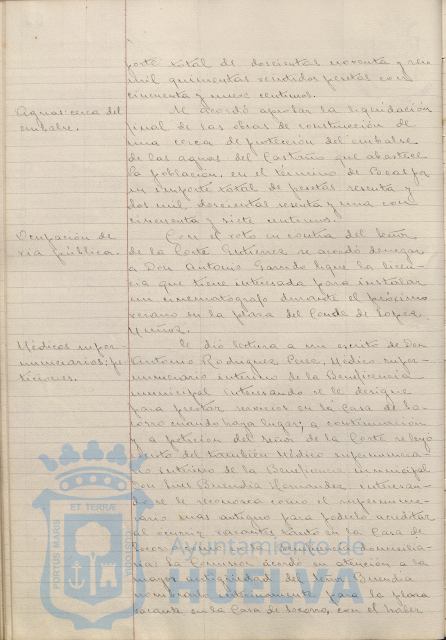 porte total de doscientas noventa y seis
mil quinientas sesenta pesetas con
cincuenta y nueve centimos.
Aguas: cerca del
embalse.
Se acordó aprobar la liquidación
final de las obras de construcción de
una cerca de protección del embalse
de las aguas del Castaño que abastece
la población, en el término de
un importe total de pesetas sesenta y
dos mil, doscientas sesenta y una con
cincuenta y siete centimos.
Ocupación de
via pública.
Con el voto en contra del Señor
de la Corte Gutierrez se acordó denegar
a Don Antonio Garrido la licen-
cia que tiene interesada para instalar
un cinematógrafo durante el próximo
verano en la plaza del Conde de Lopez
Muñoz.
Médicos super-
numerarios; pe-
ticiones.
Se dió lectura a un escrito de Don
Antonio Rodriguez Médico super-
numerario interino de la Beneficencia
municipal interesando se le designe
para prestar servicios en la Casa de So-
corro cuando haya lugar; a continuación
y a petición del Señor de la Corte se leyó
escrito del también Médico supernumera-
rio interino de la Beneficencia municipal
Don Luis Buendia Hernandez, interesan-
do se le reconozca como el supernume-
rario más antiguo para poderlo acreditar
al ocurrir vacantes tanto en la Casa de
Socorro como en domicilia-
ria; la Comisión acordó en atención a la
mayor antigüedad del Señor Buendia
nombrarlo interinamente para la plaza
vacante en la Casa de Socorro, con el haber
ET TERRAE
PORTUS MARIS
CUSTODIA
Ayuntamiento de
HUELVA